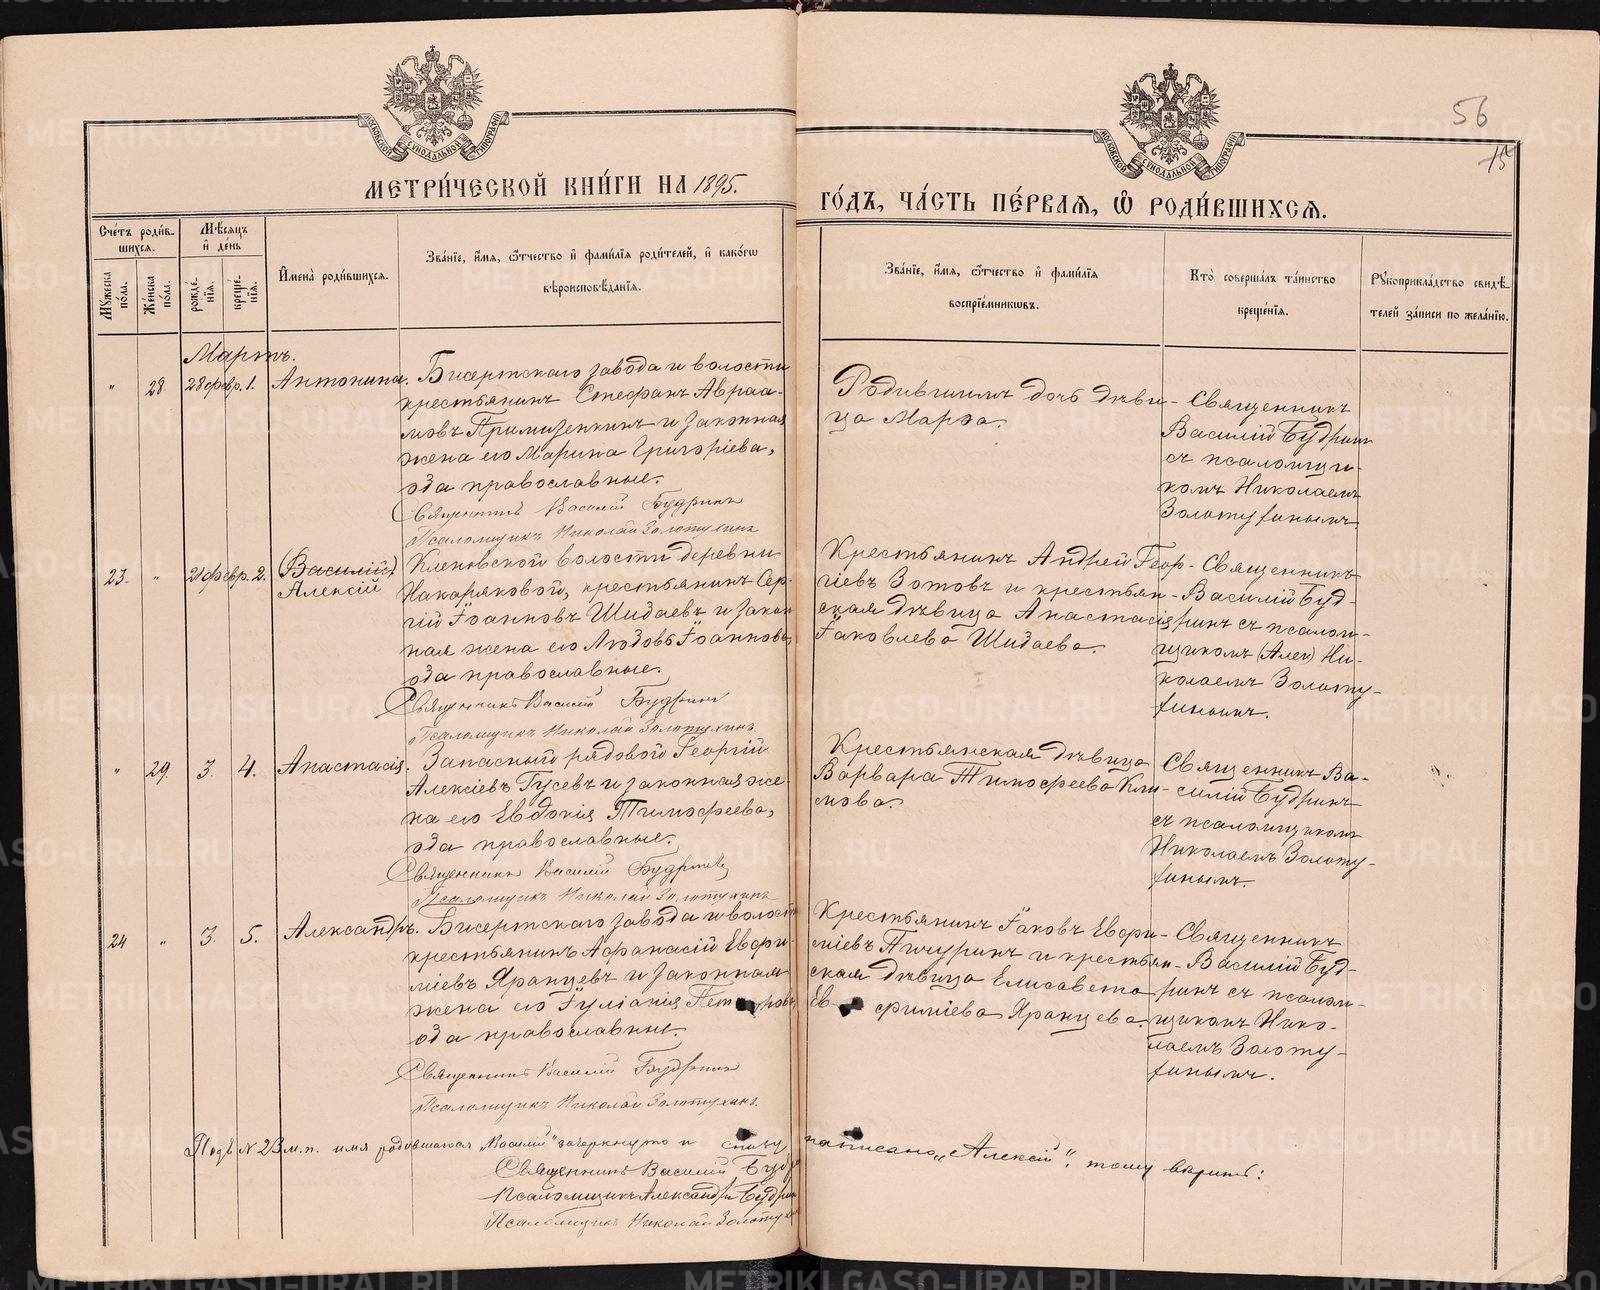 56
15
МОСКОВСКОЙ СИНОДАЛЬНОЙ ТИПОГРАФИИ
МОСКОВСКОЙ СИНОДАЛЬНОЙ ТИПОГРАФИИ
МЕТРИ́ЧЕСКОЙ КНИ́ГИ НА 1895.
ГО́ДЪ, ЧА́СТЬ ПЕ́РВАЯ, Ѡ҆ РОДИ́ВШИХСЯ.
Сче́тъ роди́в-
шихся.
Мѣ́сяцъ
и҆ де́нь
Мꙋ́жеска по́ла.
Же́нска по́ла.
рожде́-
нїѧ.
креще́-
нїѧ.
И҆мена̀ роди́вшихся.
Зва́нїе, и҆́мѧ, ѻ҆́тчество и҆ фами́лїѧ роди́телей, и҆ како́гѡ
вѣроисповѣ́данїѧ.
Зва́нїе, и҆́мѧ, ѻ҆́тчество и҆ фами́лїѧ
воспрїе́мникѡвъ.
Кто̀ соверша́лъ та́инство
креще́нїѧ.
Рꙋкоприкла́дство свидѣ́-
телей за́писи по жела́нїю.
Мартъ.
„ 28. 28 февр. 1. Антонина.
Бисертскаго завода и волости
крестьянинъ Стефанъ Авраа-
мовъ и законная
жена его Марина Григоріева,
оба православные.
Священникъ Василій Будринъ
Псаломщикъ Николай Золотухинъ
Родившимъ дочь дѣви-
ца Марѳа.
Священникъ
Василій Будринъ
съ псаломщи-
комъ Николаемъ
Золотухинымъ
23. „ 21 февр. 2. (Василій)
Алексій
Кленовской волости деревни
Накаряковой, крестьянинъ Сер-
гій Іоанновъ Шидаевъ и закон
ная жена его Любовь Іоаннова,
оба православные.
Священникъ Василій Будринъ
Псаломщикъ Николай Золотухинъ.
Крестьянинъ Андрей Геор-
гіевъ Зотовъ и крестьян-
ская дѣвица Анастасія
Іаковлева Шидаева.
Священникъ
Василій Буд-
ринъ съ псалом-
щикомъ (Алек) Ни-
колаемъ Золоту-
хинымъ.
„ 29. 3. 4. Анастасія.
Запасный рядовой Георгій
Алексіевъ Гусевъ и законная же-
на его Евдокія Тимофеева,
оба православные.
Священникъ Василій Будринъ
Псаломщикъ Николай Золотухинъ
Крестьянская дѣвица
Варвара Тимофеева Кли-
мова.
Священникъ Ва-
силій Будринъ
съ псаломщикомъ
Николаемъ Золоту-
хинымъ.
24 „ 3. 5. Александръ.
Бисертскаго завода и волости
крестьянинъ Афанасій Евфи-
міевъ Яранцевъ и законная
жена его Іуліанія Петрова,
оба православные.
Священникъ Василій Будринъ
Псаломщикъ Николай Золотухинъ.
Крестьянинъ Іаковъ Евфи-
міевъ Пичуринъ и крестьян-
ская дѣвица Елисавета
Евфиміева Яранцева.
Священникъ
Василій Буд-
ринъ съ псалом-
щикомъ Нико-
лаемъ Золоту-
хинымъ.
Подъ № 23 м.п. имя родившагося „Василій" зачеркнуто и снизу написано „Алексій", тому вѣрить:
Священникъ Василій Будр
Псаломщикъ Александръ Будрин
Псаломщикъ Николай Золотух